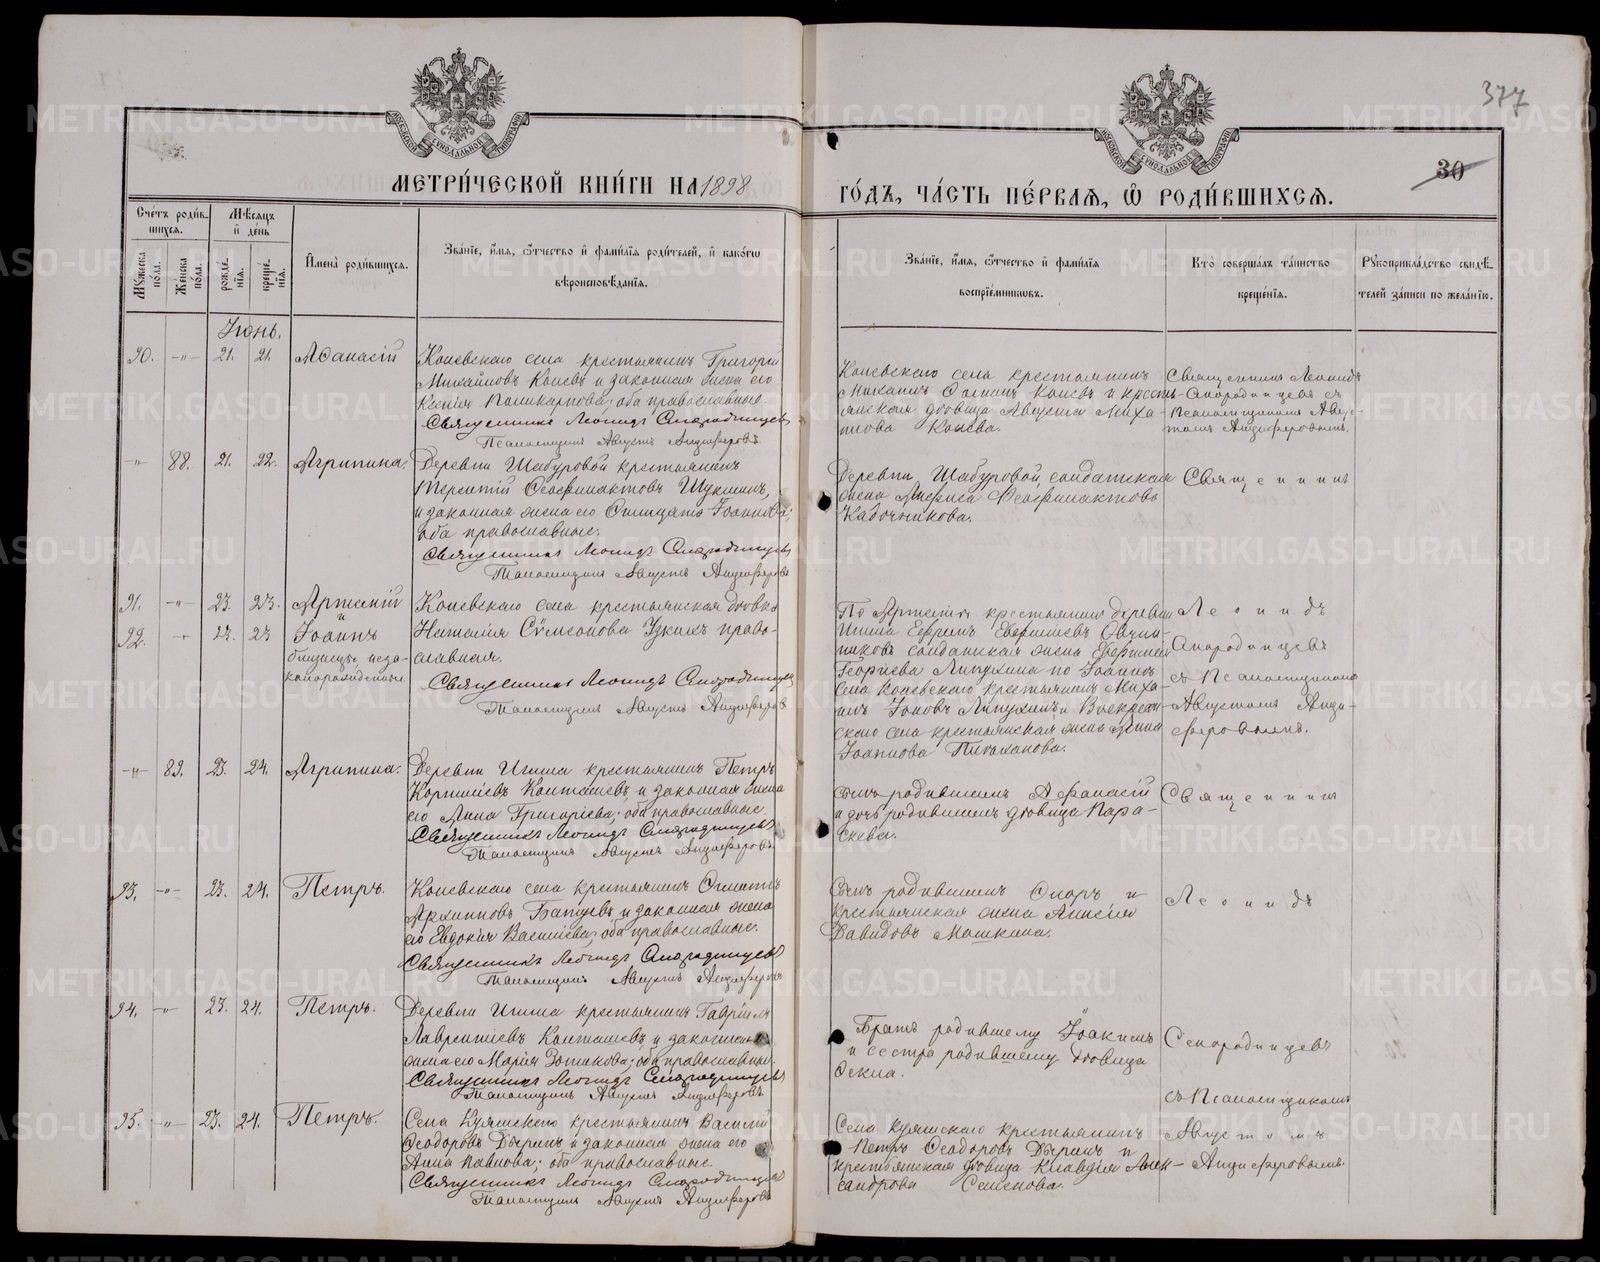 377
30
МЕТРИ́ЧЕСКОЙ КНИ́ГИ НА 1898
ГО́ДЪ, ЧА́СТЬ ПЕ́РВАЯ, Ѽ РОДИ́ВШИХСЯ.
Сче́тъ роди́в-
шихся.
Мѣ́сяцъ
и҆ де́нь
Мꙋ́жеска по́ла.
Же́нска по́ла.
рожде́нїя.
креще́нїя.
И҆мена̀ роди́вшихся.
Зва́нїе, и҆́мя, ѻ҆́тчество и҆ фами́лїя роди́телей, и҆ како́гѡ
вѣроисповѣ́данїя.
Зва́нїе, и҆́мя, ѻ҆́тчество и҆ фами́лїя
воспрїе́мниковъ.
Кто̀ соверша́лъ та́инство
креще́нїя.
Рꙋкоприкла́дство свидѣ́-
телей за́писи по жела́нїю.
Іюнь.
90. -"- 21. 21. Аѳанасій
Коневскаго села крестьянинъ Григорій
Михайловъ Коневъ и законная жена его
Ксенія Поликарпова; оба православные.
Священникъ Леонидъ Смородинцевъ
Псаломщикъ Августъ Анциферовъ
Коневскаго села крестьянинъ
Михаилъ Коневъ и кресть-
янская дѣвица Миха-
лова Конева.
Священникъ Леонидъ
Смородинцевъ съ
Псаломщикомъ Авгу-
стомъ Анциферовымъ.
-"- 88. 21. 22. Агрипина.
Деревни Шабуровой крестьянинъ
Терентій Ѳеофилактовъ Щукинъ,
и законная жена его Іоаннова;
оба православные.
Священникъ Леонидъ Смородинцевъ
Псаломщикъ Августъ Анциферовъ
Деревни Шабуровой солдатская
жена Ѳеофилактова
Кабочникова.
Священникъ
91. -"- 23. 23. Артемій
и
92. -"- 23. 23 Іоаннъ
близнецы, неза-
коннорожденные
Коневскаго села крестьянская дѣвка
Наталія Сѵмеонова Узкихъ право-
славная.
Священникъ Леонидъ Смородинцевъ
Псаломщикъ Августъ Анциферовъ
По Артемія крестьянинъ деревни
Иткиа Ефремъ Овчин-
никовъ солдатская жена
Георгіева Липухина по Іоаннѣ
села Коневскаго крестьянинъ Миха-
илъ Іоновъ Липухинъ и Воскресен-
скаго села крестьянская жена Анна
Іоаннова
Леонидъ
Смородинцевъ
съ Псаломщикомъ
Августомъ Анци-
феровымъ.
-"- 89. 23. 24. Агрипина.
крестьянинъ Петръ
Корниліевъ и законная жена
его Анна Григоріева; оба православные.
Священникъ Леонидъ Смородинцевъ
Псаломщикъ Августъ Анциферовъ
Сынъ родившимъ Аѳанасій
и дочь родившимъ дѣвица Пара-
скева.
Священникъ
93. -"- 23. 24. Петръ.
Коневскаго села крестьянинъ
Архиповъ и законная жена
его Евдокія Василіева; оба православные.
Священникъ Леонидъ Смородинцевъ
Псаломщикъ Августъ Анциферовъ
Сынъ родившимъ и
крестьянская жена Анисія
Давидовъ Мошкина.
Леонидъ
94. -"- 23. 24. Петръ.
крестьянинъ Гавріилъ
Лаврентіевъ и законная
жена его Марія; оба православные.
Священникъ Леонидъ Смородинцевъ
Псаломщикъ Августъ Анциферовъ
Братъ родившему Іоакимъ
и сестра родившему дѣвица
Ѳекла.
Смородинцевъ
съ Псаломщикомъ
95. -"- 23. 24. Петръ.
Села крестьянинъ Василій
Ѳеодоровъ и законная жена его
Анна Павлова; оба православные
Священникъ Леонидъ Смородинцевъ
Псаломщикъ Августъ Анциферовъ
Села крестьянинъ
Петръ Ѳеодоровъ и
крестьянская дѣвица Клавдія Алек-
сандрова Семенова.
Августомъ
Анциферовымъ.
METRIKI.GASO-URAL.RU